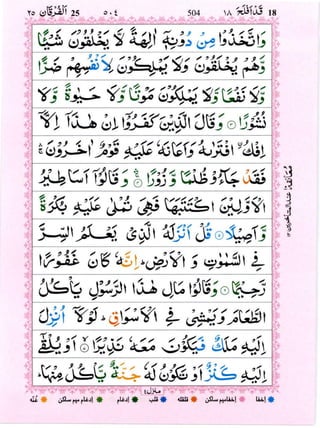 قَدْ اَفْلَحَ ١٨ 504 ٥٠٤ اَلْفُرْقَان ٢٥ 25 18
وَاتَّخَذُوْا مِنْ دُوْنِهٖۤ اٰلِهَةً لَّا يَخْلُقُوْنَ شَيْـًٔا
وَّهُمْ يُخْلَقُوْنَ وَلَا يَمْلِكُوْنَ لِاَنْفُسِهِمْ ضَرًّا
وَّلَا نَفْعًا وَّلَا يَمْلِكُوْنَ مَوْتًا وَّلَا حَيٰوةً وَّلَا
نُشُوْرًا ﴿۳﴾ وَقَالَ الَّذِيْنَ كَفَرُوْۤا اِنْ هٰذَاۤ اِلَّاۤ
اِفْكُ اۨفْتَرٰىهُ وَاَعَانَهٗ عَلَيْهِ قَوْمٌ اٰخَرُوْنَ ۛۚ
فَقَدْ جَآءُوْ ظُلْمًا وَّزُوْرًا ﴿۴﴾ وَقَالُوْۤا اَسَاطِيْرُ
الْاَوَّلِيْنَ اكْتَتَبَهَا فَهِيَ تُمْلٰى عَلَيْهِ بُكْرَةً
وَّاَصِيْلًا ﴿۵﴾ قُلْ اَنْزَلَهُ الَّذِيْ يَعْلَمُ السِّرَّ
فِي السَّمٰوٰتِ وَالْاَرْضِ ؕ اِنَّهٗ كَانَ غَفُوْرًا
رَّحِيْمًا ﴿۶﴾ وَقَالُوْا مَالِ هٰذَا الرَّسُوْلِ يَاْكُلُ
الطَّعَامَ وَيَمْشِيْ فِي الْاَسْوَاقِ ؕ لَوْلَاۤ اُنْزِلَ
اِلَيْهِ مَلَكٌ فَيَكُوْنَ مَعَهٗ نَذِيْرًا ﴿۷﴾ اَوْ يُلْقٰۤى
اِلَيْهِ كَنْزٌ اَوْ تَكُوْنُ لَهٗ جَنَّةٌ يَّاْكُلُ مِنْهَا ؕ
منزل ٤
اخفا اخفا میم ساکن قلقلہ قلب ادغام ادغام میم ساکن غنّہ